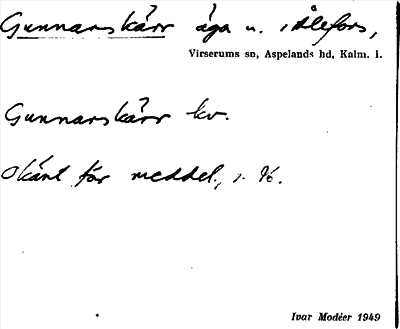 Gunnarskärr äga u. i Ålefors,
Virserums sn, Aspelands hd, Kalm. l.
Gunnarskärr kv.
Okänt för meddel.,
Ivar Modéer 1949